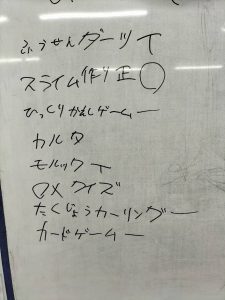 ふうせんダーツ T
スライム作り 正 ◯
ひっくりかえしゲーム 一
カルタ
モルック T
〇×クイズ
たくじょうカーリング 一
カードゲーム 一